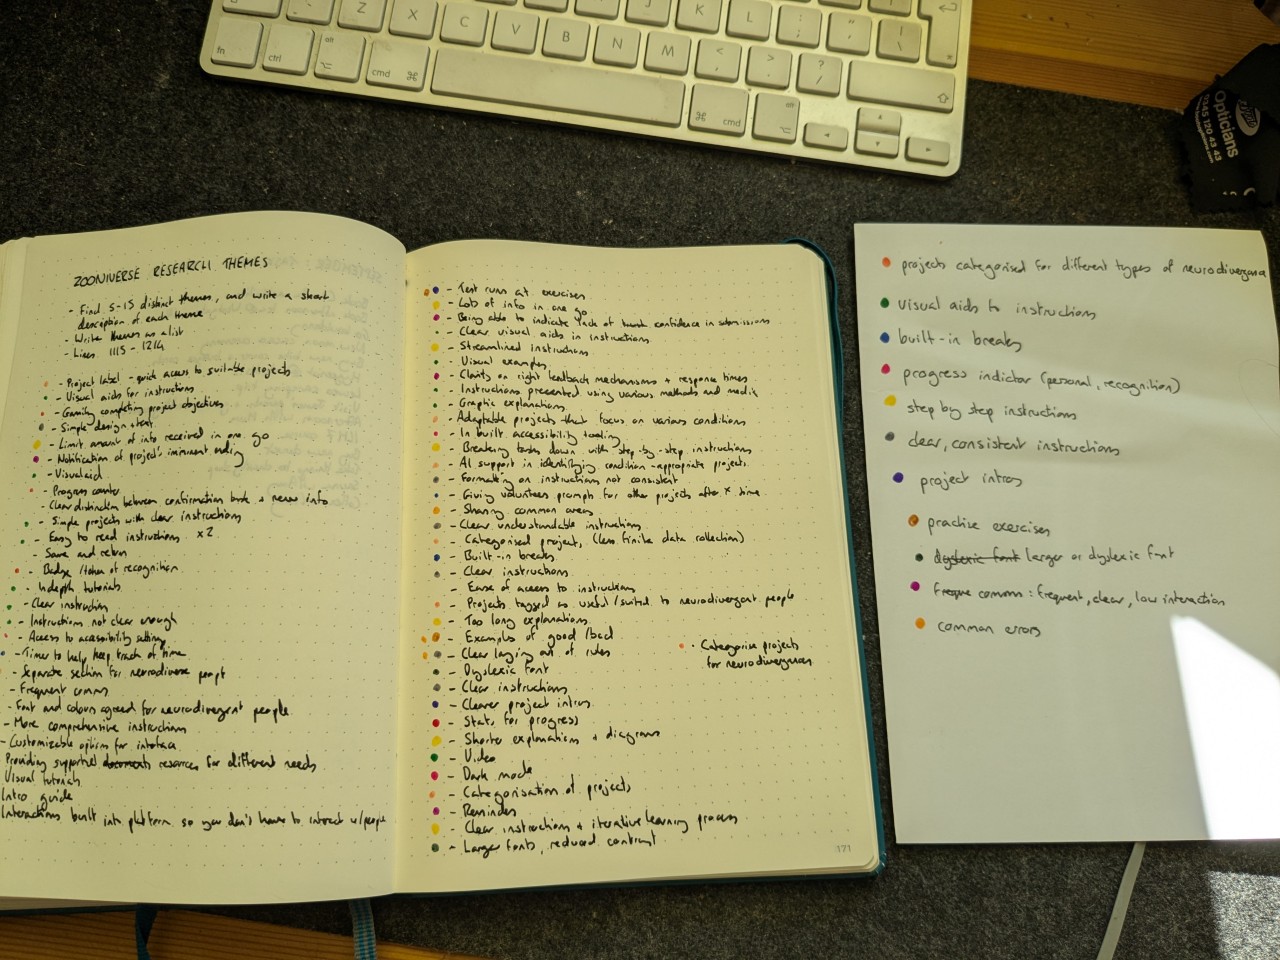 Z
X
C
V
B
N
M
J
K
L
;
:
"
'
|
\
<
,
>
.
?
/
fn
ctrl
alt
cmd
cmd
alt
Opticians
0345 120 43 43
ZOONIVERSE RESEARCH THEMES
- Find 5-15 distinct themes, and write a short
description of each theme
- Write themes as a list
- Lines 1115 - 1214
- Project label - quick access to suitable projects
- Visual aids for instructions
- Gamify completing project objectives
- Simple design + text
- Limit amount of info received in one go
- Notification of project's imminent ending
- Visual aid
- Progress counter
- Clear distinction between confirmation task + new info
- Simple projects with clear instructions
- Easy to read instructions x2
- Save and return
- Badge / token of recognition
- Indepth tutorials
- Clear instruction
- Instructions not clear enough
- Access to accessibility settings
- Timer to help keep track of time
- Separate section for neurodiverse people
- Frequent comms
- Font and colours agreed for neurodivergent people
- More comprehensive instructions
- Customizable options for interface
Providing supported resources for different needs
Visual tutorials
Intro guide
Interactions built into platform so you don't have to interact w/people
- Test runs at exercises
- Lots of info in one go
- Being able to indicate lack of confidence in submissions
- Clear visual aids in instructions
- Streamlined instructions
- Visual examples
- Clarity on right feedback mechanisms + response times
- Instructions presented using various methods and media
- Graphic explanations
- Adaptable projects that focus on various conditions
- In built accessibility tooling
- Breaking tasks down with step-by-step instructions
- AI support in identifying condition-appropriate projects
- Formatting on instructions not consistent
- Giving volunteers prompt for other projects after x time
- Sharing common areas
- Clear understandable instructions
- Categorised project, (less finite data collection)
- Built-in breaks
- Clear instructions
Ease of access to instructions
- Projects tagged as useful/suited to neurodivergent people
- Too long explanations
- Examples of good/bad
- Clear laying out of rules
- Dyslexic font
- Clear instructions
- Clearer project intros
- Stats for progress
- Shorter explanations + diagrams
- Video
- Dark mode
- Categorisation of projects
- Reminders
- Clear instructions + iterative learning process
- Larger fonts, reduced contrast
- Categorise projects
for neurodivergences
171
projects categorised for different types of neurodivergence
visual aids to instructions
built-in breaks
progress indicator (personal, recognition)
step by step instructions
clear, consistent instructions
project intros
practise exercises
dyslexic font larger or dyslexic font
Freque comms: frequent, clear, low interaction
common errors